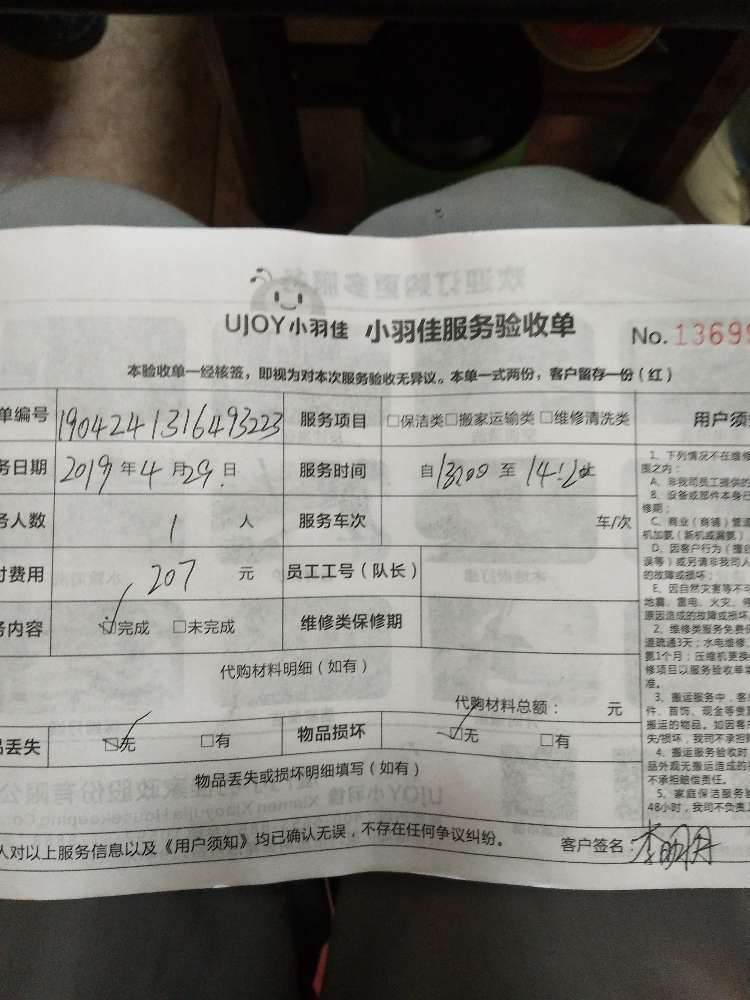 UJOY小羽佳 小羽佳服务验收单 No. 13699
本验收单一经核签，即视为对本次服务验收无异议。本单一式两份，客户留存一份（红）
单编号 1904241316493223 服务项目 □保洁类□搬家运输类□维修清洗类 用户须
务日期 2019年4月29日 服务时间 自 至
务人数 1 人 服务车次 车/次
付费用 207 元 员工工号（队长）
务内容 ☑完成 □未完成 维修类保修期
代购材料明细（如有）
代购材料总额： 元
品丢失 ☑无 □有 物品损坏 ☑无 □有
物品丢失或损坏明细填写（如有）
人对以上服务信息以及《用户须知》均已确认无误，不存在任何争议纠纷。 客户签名：
1、下列情况不在维修
围之内：
A、非我司员工提供的
B、设备或部件本身已
修期；
C、商业（商铺）管道
机加氨（新机或漏氨）
D、因客户行为（擅自
误等）或另请非我司人
的故障或损坏；
E、因自然灾害等不可
地震、雷电、火灾、停
原因造成的故障或损坏
2、维修类服务免费保
道疏通3天；水电维修
氨1个月；压缩机更换
修项目以服务验收单
准。
3、搬运服务中，客
件、首饰、现金等贵
搬运的物品。如因客户
失/损坏，我司不承担
4、搬运服务验收时
品外观无搬运造成的
不承担赔偿责任。
5、家庭保洁服务
48小时，我司不负责